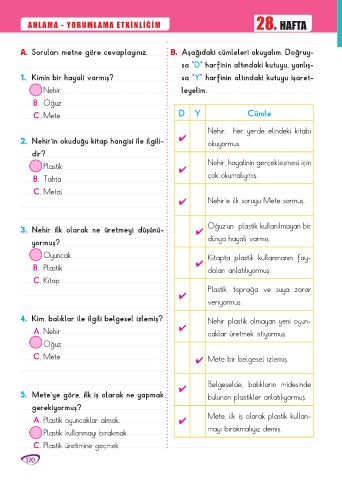 ANLAMA - YORUMLAMA ETKİNLİĞİM
28. HAFTA
A. Soruları metne göre cevaplayınız.
1. Kimin bir hayali varmış?
Nehir
B. Oğuz
C. Mete
2. Nehir'in okuduğu kitap hangisi ile ilgili-
dir?
Plastik
B. Tahta
C. Metal
3. Nehir ilk olarak ne üretmeyi düşünü-
yormuş?
Oyuncak
B. Plastik
C. Kitap
4. Kim, balıklar ile ilgili belgesel izlemiş?
A. Nehir
Oğuz
C. Mete
5. Mete'ye göre, ilk iş olarak ne yapmak
gerekiyormuş?
A. Plastik oyuncaklar almak.
Plastik kullanmayı bırakmak.
C. Plastik üretimine geçmek.
B. Aşağıdaki cümleleri okuyalım. Doğruy-
sa "D" harfinin altındaki kutuyu, yanlış-
sa "Y" harfinin altındaki kutuyu işaret-
leyelim.
D Y Cümle
Nehir, her yerde elindeki kitabı
okuyormuş.
Nehir, hayalinin gerçekleşmesi için
çok okumalıymış.
Nehir'e ilk soruyu Mete sormuş.
Oğuz'un plastik kullanılmayan bir
dünya hayali varmış.
Kitapta plastik kullanmanın fay-
daları anlatılıyormuş.
Plastik, toprağa ve suya zarar
veriyormuş.
Nehir plastik olmayan yeni oyun-
caklar üretmek istiyormuş.
Mete bir belgesel izlemiş.
Belgeselde, balıkların midesinde
bulunan plastikler anlatılıyormuş.
Mete, ilk iş olarak plastik kullan-
mayı bırakmalıyız demiş.
370